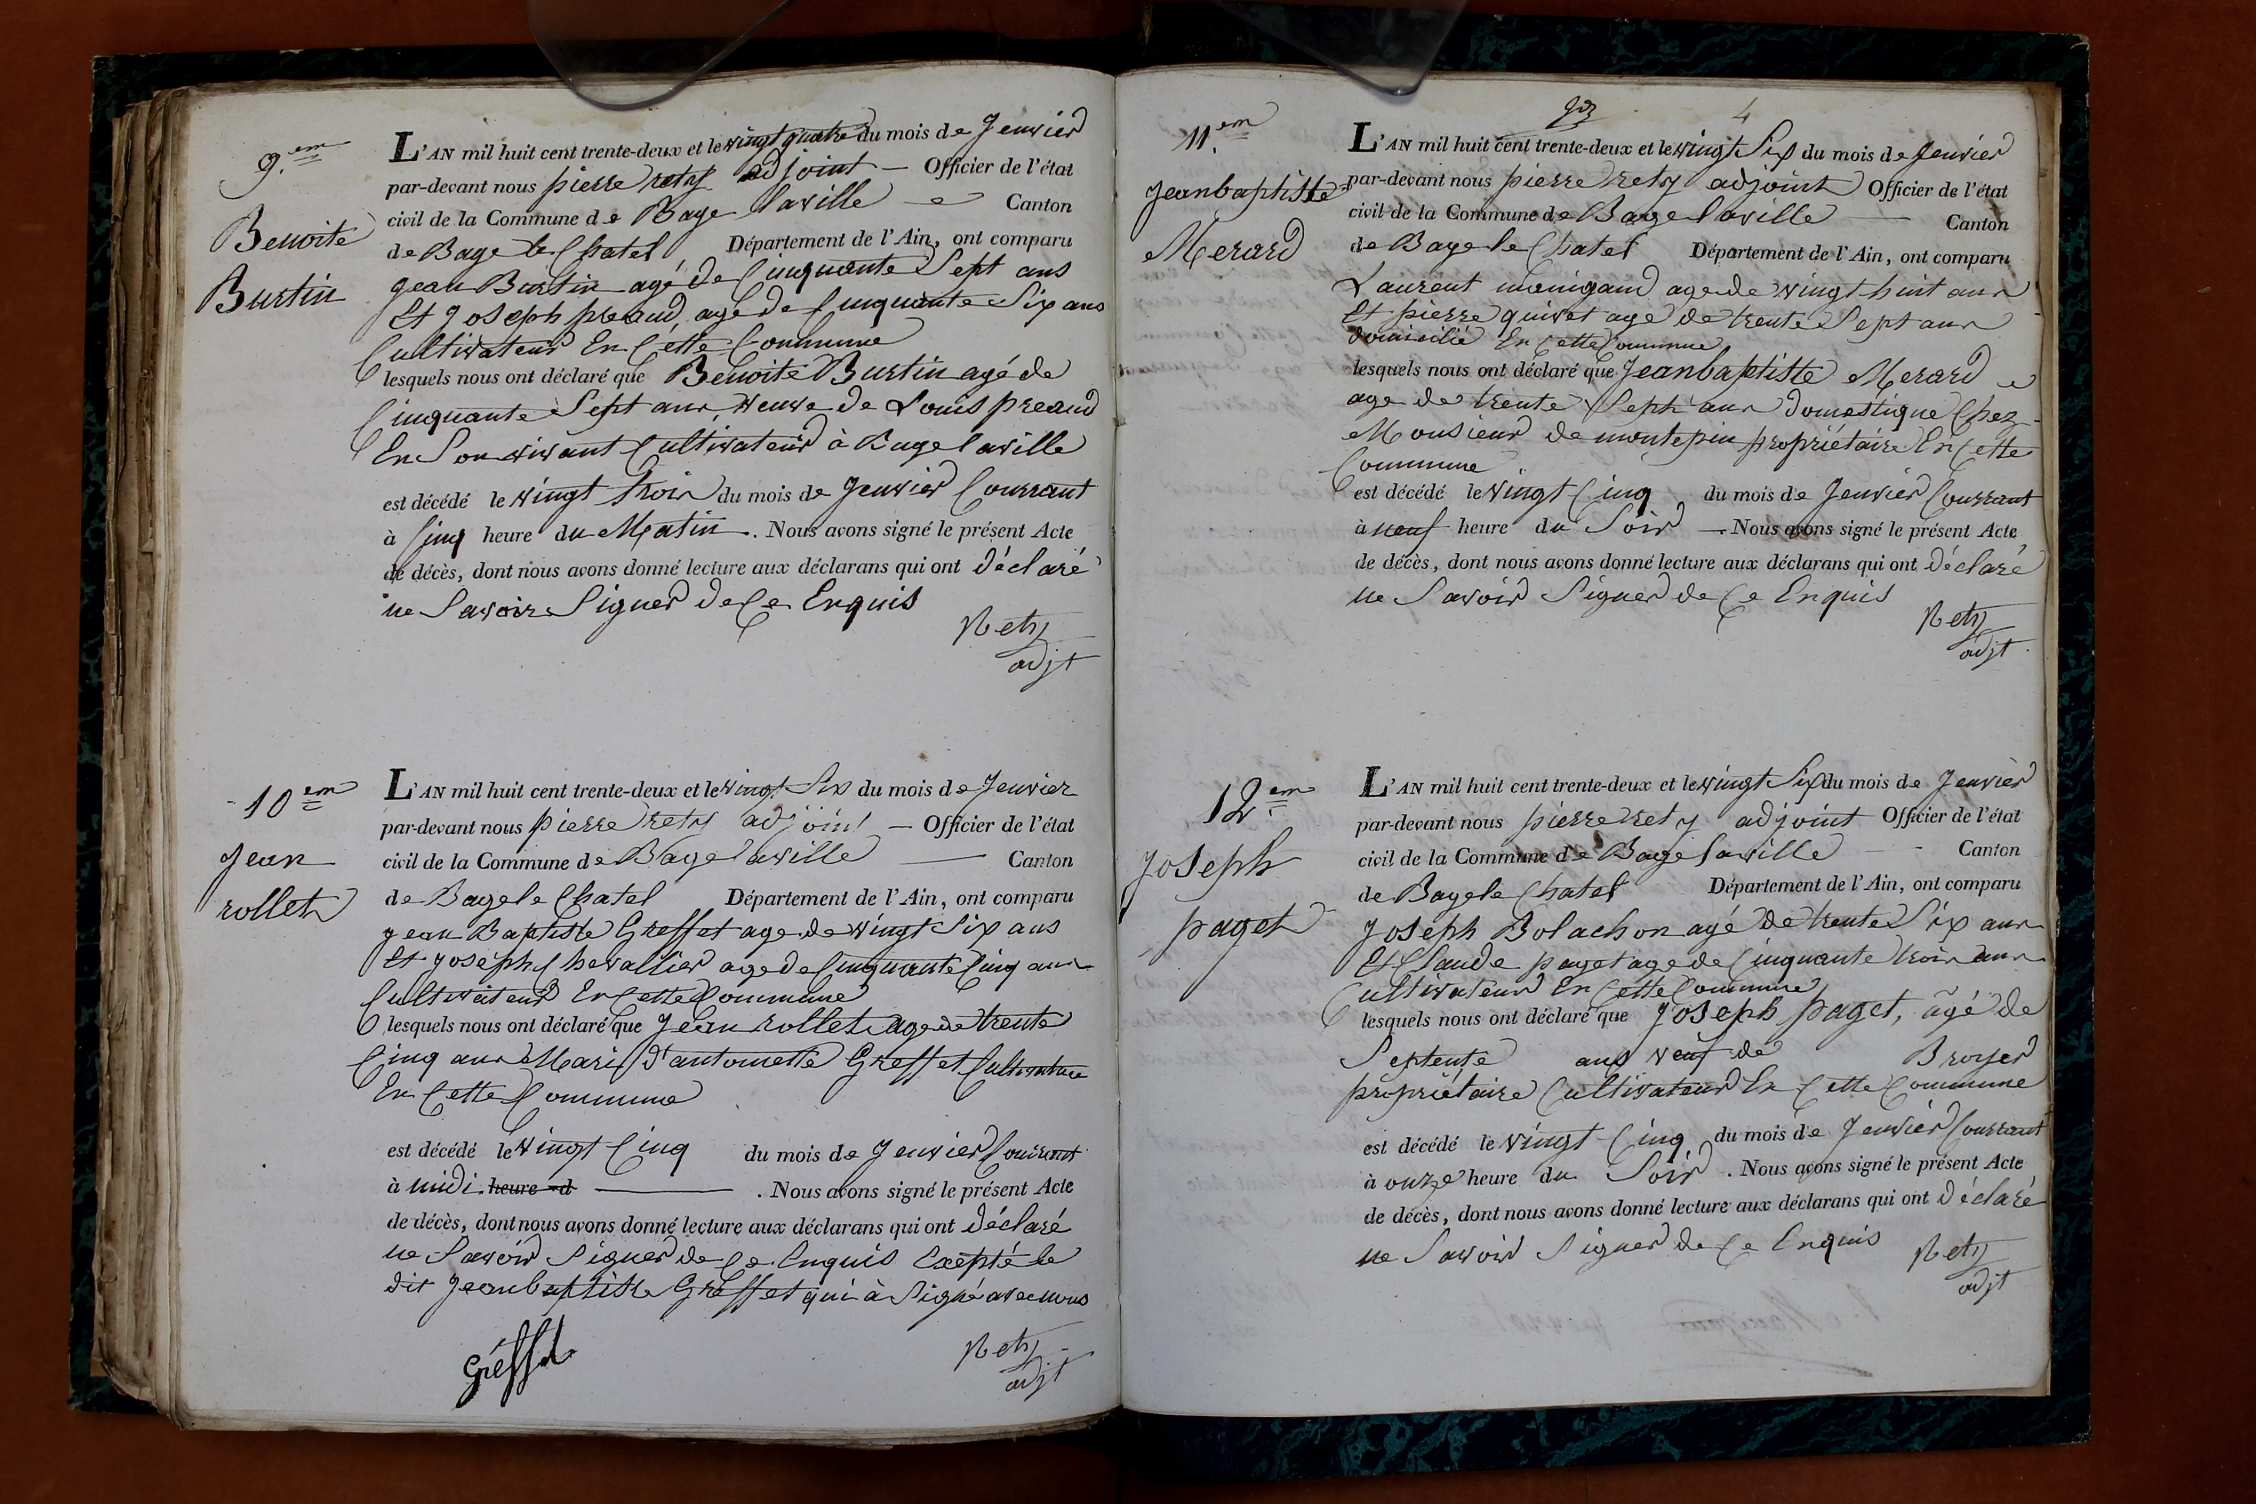 9.em
Benoite
Burtin
L'AN mil huit cent trente-deux et le vingt quatre du mois de Jenvier
par-devant nous pierre rety adjoint — Officier de l'état
civil de la Commune de Bage laville — Canton
de Bage le Chatel Département de l'Ain, ont comparu
jean Burtin agé de Cinquante Sept ans
Et joseph preaud agé de Cinquante Six ans
Cultivateur En Cette Commune
lesquels nous ont déclaré que Benoite Burtin agé de
Cinquante Sept ans veuve de Louis preaud
En Son vivant Cultivateur à Bage laville
est décédé le vingt trois du mois de Jenvier Courrant
à Cinq heure du Matin. Nous avons signé le présent Acte
de décès, dont nous avons donné lecture aux déclarans qui ont déclaré
ne Savoir Signer de Ce Enquis
Rety
adjt
10em
jean
rollet
L'AN mil huit cent trente-deux et le vingt Six du mois de Jenvier
par-devant nous pierre rety adjoint — Officier de l'état
civil de la Commune de Bage laville — Canton
de Bage le Chatel Département de l'Ain, ont comparu
jean Baptiste Greffet age de vingt Six ans
Et joseph Chevallier age de Cinquante Cinq ans
Cultivateur En Cette Commune
lesquels nous ont déclaré que Jean rollet age de trente
Cinq ans Mari d'antoinette Greffet Cultivatrice
En Cette Commune
est décédé le vingt Cinq du mois de Jenvier Courrant
à midi heure d — . Nous avons signé le présent Acte
de décès, dont nous avons donné lecture aux déclarans qui ont déclaré
ne Savoir Signer de Ce Enquis Exepté le
dit Jean baptiste Greffet qui à Signé avec nous
Greffet
Rety
adjt
4
11.em
jean baptiste
Merard
L'AN mil huit cent trente-deux et le vingt Six du mois de Jenvier
par-devant nous pierre rety adjoint Officier de l'état
civil de la Commune de Bage laville — Canton
de Bage le Chatel Département de l'Ain, ont comparu
Laurent monigaud age de vingt huit ans
Et pierre quivet age de trente Sept ans
domicilié En Cette Commune
lesquels nous ont déclaré que Jean baptiste Merard
age de trente Sept ans domestique Chez
Monsieur de montepin propriétaire En Cette
Commune
est décédé le vingt Cinq du mois de Jenvier Courrant
à neuf heure du Soir — Nous avons signé le présent Acte
de décès, dont nous avons donné lecture aux déclarans qui ont déclaré
ne Savoir Signer de Ce Enquis
Rety
adjt
12.em
joseph
paget
L'AN mil huit cent trente-deux et le vingt Six du mois de Jenvier
par-devant nous pierre rety adjoint Officier de l'état
civil de la Commune de Bage laville - - Canton
de Bage le Chatel Département de l'Ain, ont comparu
joseph Bolachon agé de trente Six ans
Et Claude paget age de Cinquante trois ans
Cultivateur En Cette Commune
lesquels nous ont déclaré que joseph paget, âgé de
Septente ans veuf de Broyer
propriétaire Cultivateur En Cette Commune
est décédé le vingt Cinq du mois de Jenvier Courrant
à onze heure du Soir. Nous avons signé le présent Acte
de décès, dont nous avons donné lecture aux déclarans qui ont déclaré
ne Savoir Signer de Ce Enquis
Rety
adjt